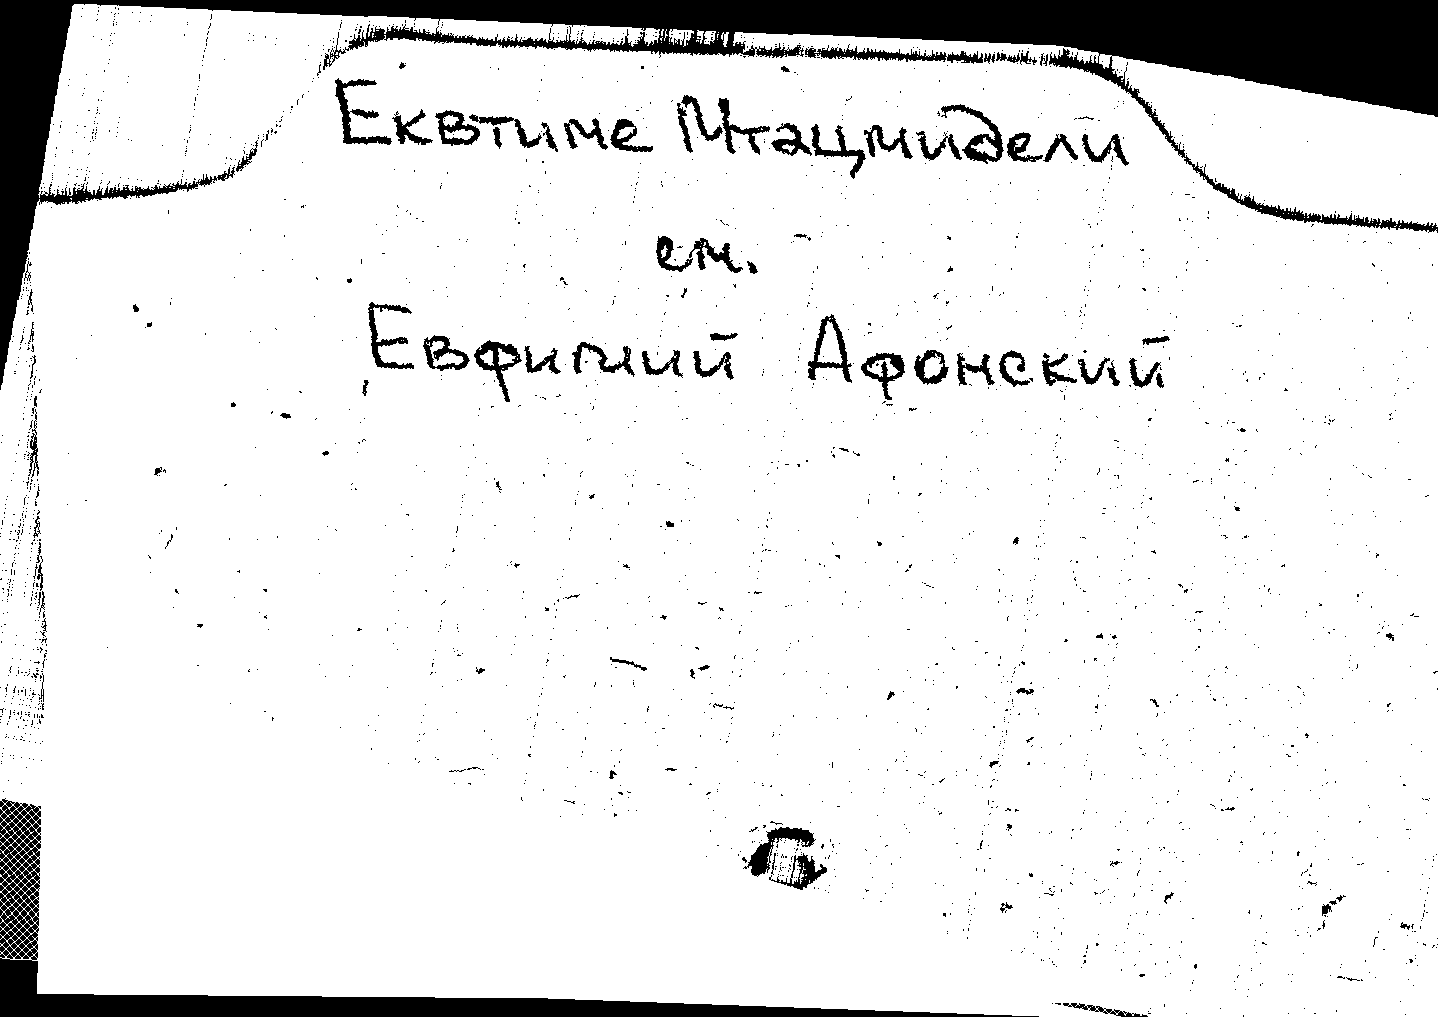 Еквтиме Мтацмидели
см.
Евфимий Афонский